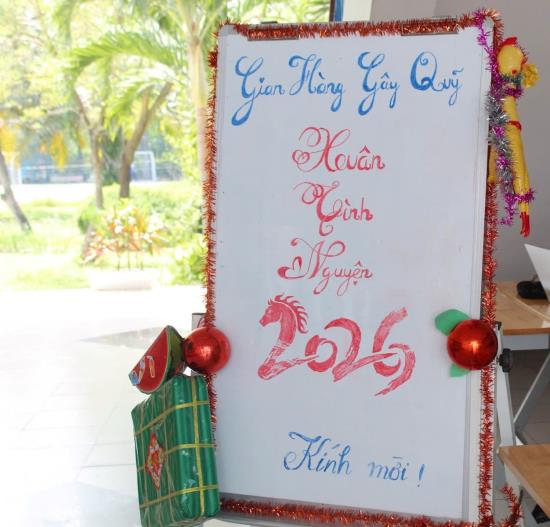 Gian Hàng Gây Quỹ
Xuân
Tình
Nguyện
2026
Kính mời!